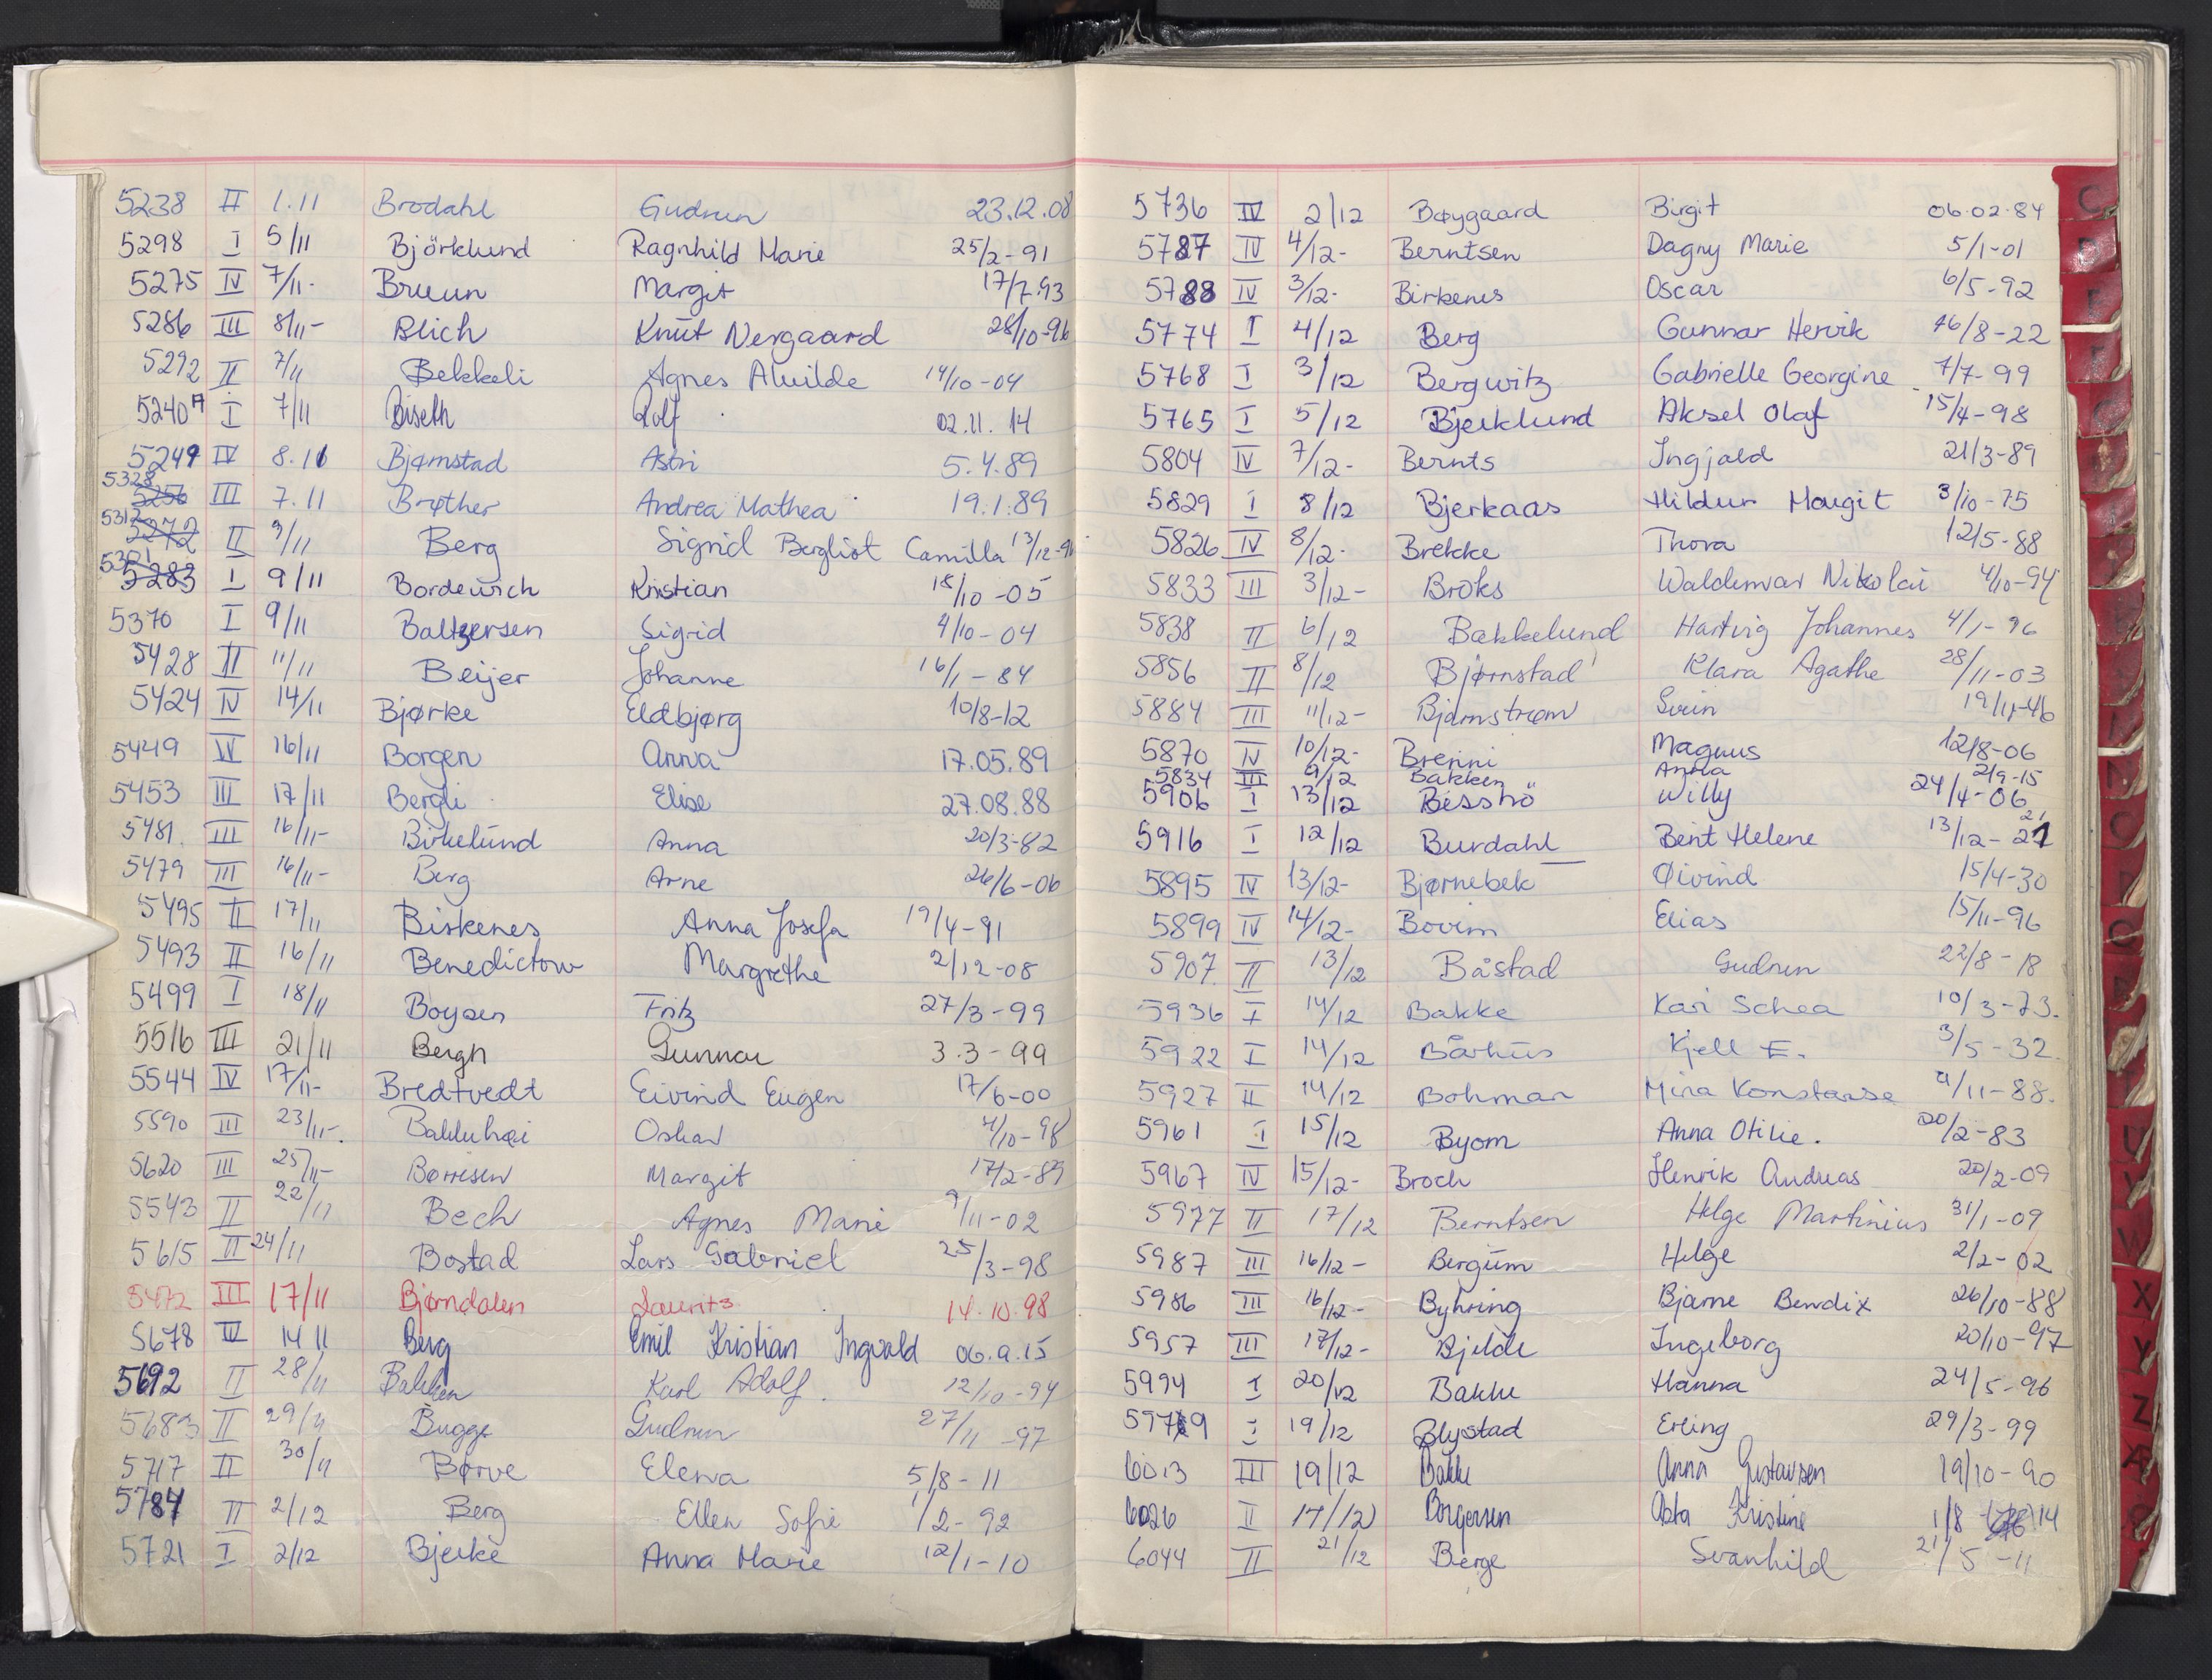 5238 II 1.11 Brodahl Gudrun 23.12.08
5298 I 5/11 Björklund Ragnhild Marie 25/2-91
5275 IV 7/11- Bruun Margit 17/7.93
5286 III 8/11- Blich Knut Nergaard 28/10-96
5292 II 7/11 Bekkeli Agnes Alvilde 14/10-04
5240 I 7/11 Biseth Rolf 02.11.14
5249 IV 8.11 Bjørnstad Astri 5.4.89
5328 5256 III 7.11 Brøther Andrea Mathea 19.1.89
5312 5272 II 9/11 Berg Sigrid Bergliot Camilla 13/12-91
5301 5283 I 9/11 Bordewich Kristian 18/10-05
5370 I 9/11 Baltzersen Sigrid 4/10-04
5428 II 11/11 Beijer Johanne 16/1-84
5424 IV 14/11 Bjørke Eldbjørg 10/8-12
5449 IV 16/11 Borgen Anna 17.05.89
5453 III 17/11 Bergli Elise 27.08.88
5481. III 16/11- Birkelund Anna 20/3-82
5479 III 16/11- Berg Arne 26/6-06
5495 II 17/11 Birkenes Anna Josefa 19/4-91
5493 II 16/11 Benedictow Margrethe 2/12-08
5499 I 18/11 Boysen Fritz 27/3-99
5516 III 21/11 Bergh Gunnar 3.3-99
5544 IV 17/11- Bredtvedt Eivind Eugen 17/6-00
5590 III 23/11-. Bakkehøi Oskar 4/10-98
5620 III 25/11- Børresen Margit 17/2-89
5543 II 22/11 Bech Agnes Marie 9/11-02
5615 II 24/11 Bostad Lars Gabriel 25/3-98
5472 III 17/11 Bjørndalen Laurits 14.10.98
5678 IV 14 11 Berg Emil Kristian Ingvald 06.9.15
5692 II 28/11 Bakken Karl Adolf. 12/10-94
5683 II 29/11 Bugge Gudrun 27/11-97
5717 II 30/11 Børve Elena 5/8-11
5784 II 2/12 Berg Ellen Sofie 1/2-92
5721 I 2/12 Bjerke Anna Marie 12/1-10
5736 IV 2/12 Bøygaard Birgit 06.02.84
5787 IV 4/12- Berntsen Dagny Marie 5/1-01
5788 IV 3/12- Birkenes Oscar 6/5-92
5774 I 4/12 Berg Gunnar Hervik 16/8-22
5768 I 3/12 Bergwitz Gabrielle Georgine 7/7-99
5765 I 5/12 Bjerklund Aksel Olaf 15/4-98
5804 IV 7/12- Bernts Ingjald 21/3-89
5829 I 8/12 Bjerkaas Hildur Margit 3/10-75
5826 IV 8/12- Brekke Thora 12/5-88
5833 III 3/12- Broks Waldemar Nikolai 4/10-94
5838 II 6/12 Bakkelund Hartvig Johannes 4/1-96
5856 II 8/12 Bjørnstad Klara Agathe 28/11-03
5884 III 11/12- Bjørnstrøm Svein 19/11-46
5870 IV 10/12- Brenni Magnus 12/8-06
5834 III 9/12 Bakken Anna 2/9-15
5906 I 13/12 Besströ Willy 24/4-06
5916 I 12/12 Burdahl Berit Helene 13/12-21 21
5895 IV 13/12- Bjørnebek Øivind 15/4-30
5899 IV 14/12- Bovim Elias 15/11-96
5907. II 13/12 Båstad Gudrun 22/8-18
5936 I 14/12 Bakke Kari Schea 10/3-73.
5922 I 14/12 Bårhus Kjell E. 3/5-32.
5927 II 14/12 Bohman Mina Konstanse 9/11-88.
5961 I 15/12 Byom Anna Otilie. 20/2-83
5967 IV 15/12- Broch Henrik Andreas 20/2-09
5977 II 17/12 Berntsen Helge Martinius 31/1-09
5987 III 16/12- Bergum Helge 2/2-02
5986 III 16/12- Byhring Bjarne Bendix 26/10-88
5957 III 17/12- Bjelde Ingeborg 20/10-97
5994 I 20/12 Bakke Hanna 24/5-96
5979 I 19/12 Blystad Erling 29/3-99
6013 III 19/12 Bakke Anna Gustavsen 19/10-90
6026 II 17/12 Borgersen Asta Kristine 1/8 14
6044 II 21/12 Berge Svanhild 21/5-11
C
O
P
U
V
W
X
Y
Z
Æ
Ø